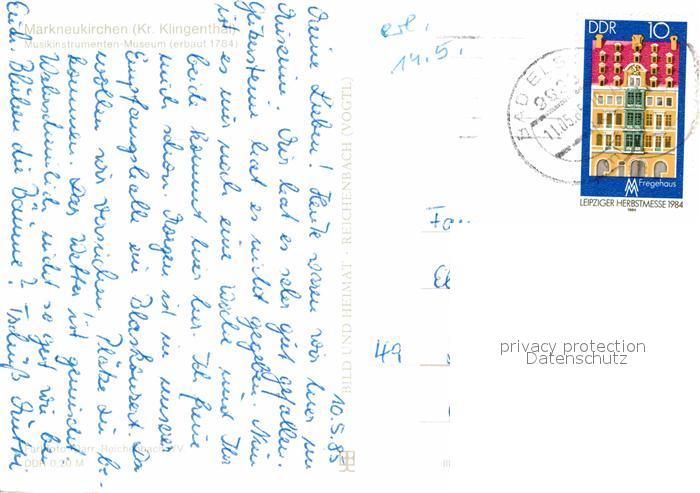 Markneukirchen (Kr. Klingenthal)
Musikinstrumenten-Museum (erbaut 1784)
10.5.85
Meine Lieben! Heute waren wir hier im
Museum. Mir hat es sehr gut gefallen.
hat es nicht gegeben. Nun
ist es nur noch eine Woche und Ihr
beide kommt hier her. Ich freue
mich schon. Morgen ist in unserer
Empfangshalle ein Blaskonzert. Da
wollen wir versuchen, Plätze zu be-
kommen. Das Wetter ist gemischt.
Wahrscheinlich nicht so gut wie bei
Euch. Blühen die Bäume? Tschüß
DDR 0,20 M
BILD UND HEIMAT · REICHENBACH (VOGTL
erl.
14.5.
Fa
49
DDR 10
Fregehaus
LEIPZIGER HERBSTMESSE 1984
1984
BAD ELST
11.05.85
privacy protection
Datenschutz